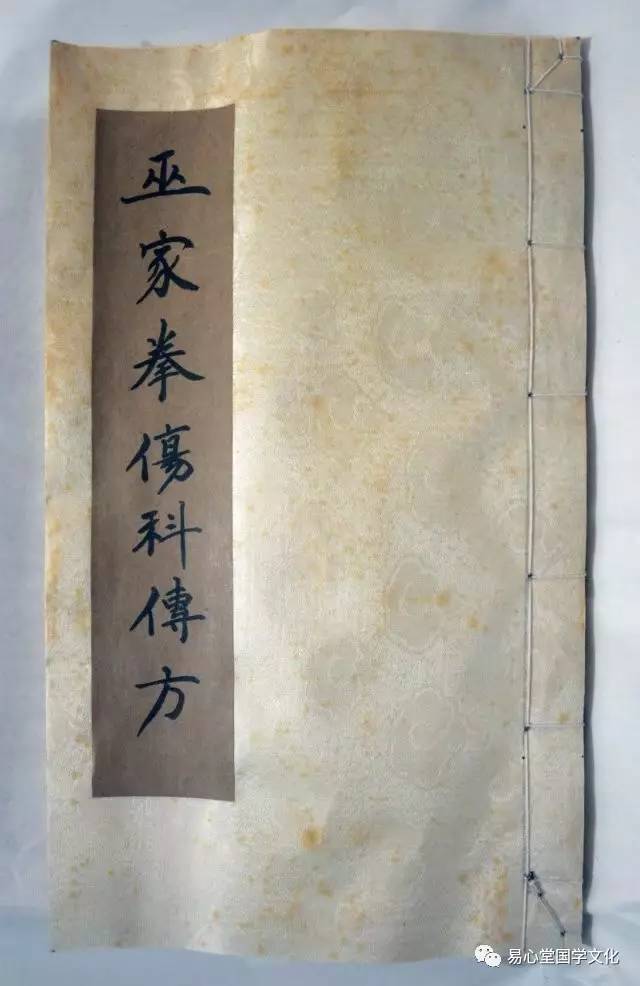 巫家拳傷科傳方
易心堂国学文化